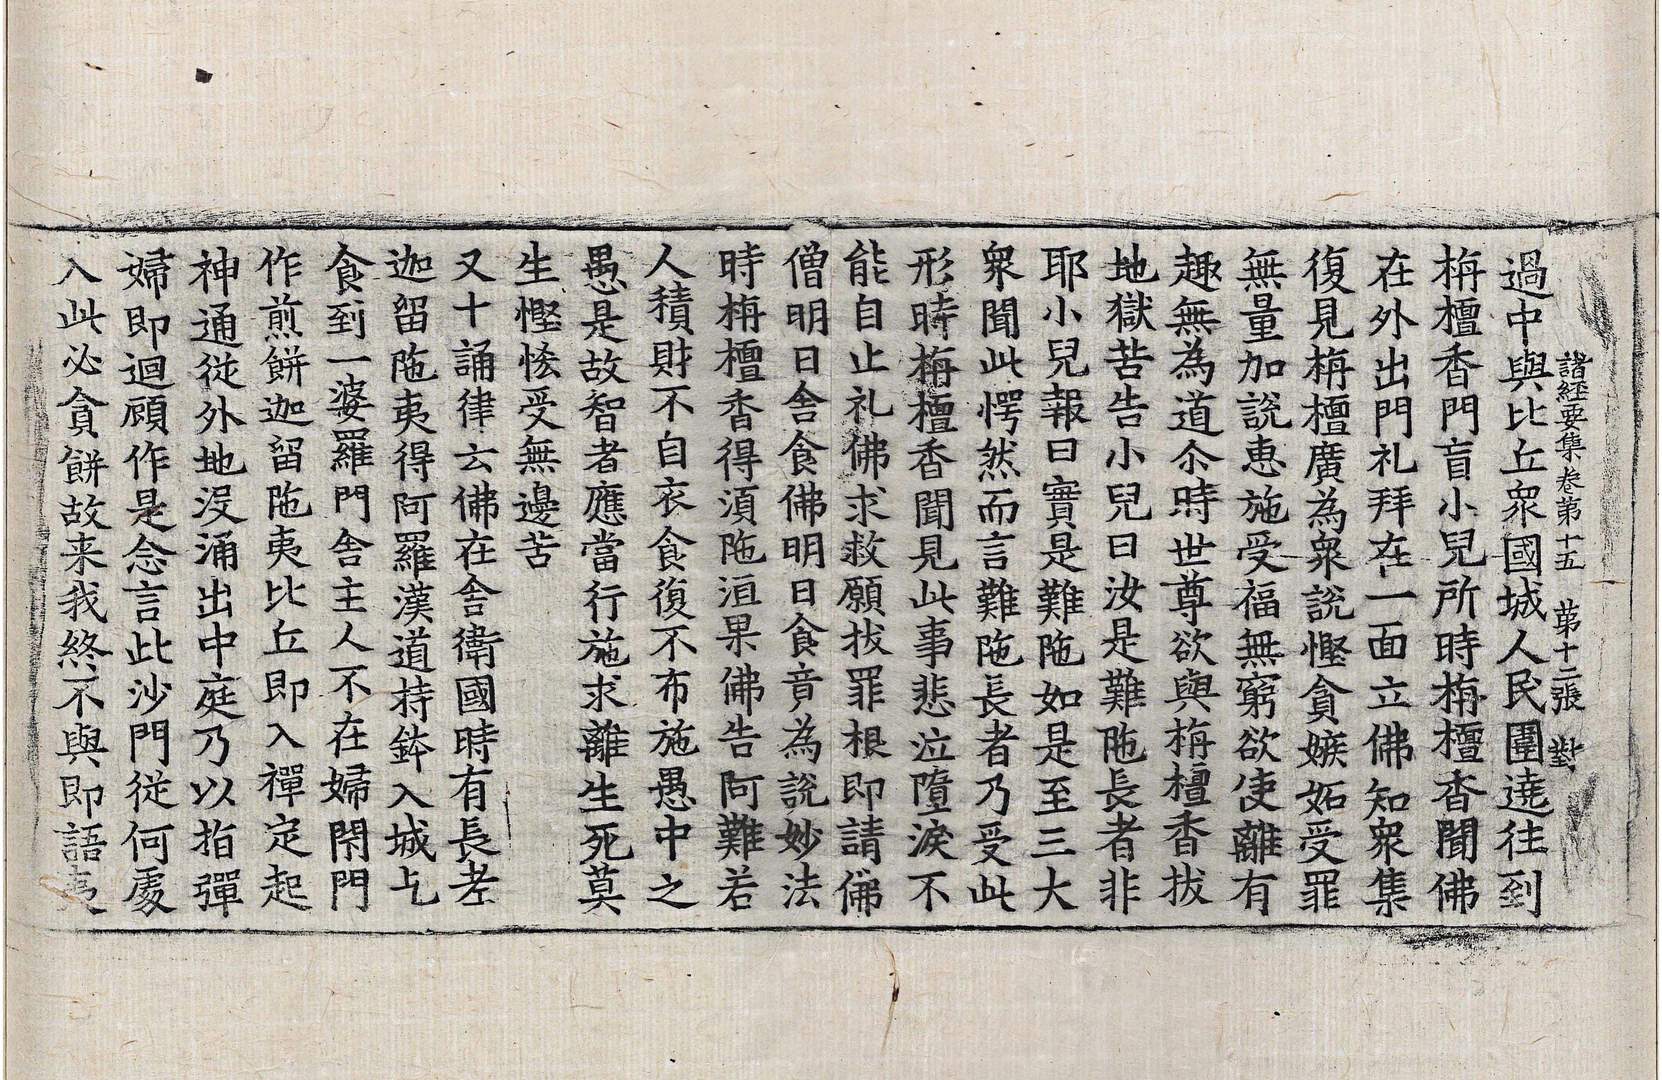 諸經要集卷第十五　第十二張　對
過中與比丘衆國城人民圍遶往到
栴檀香門盲小兒所時栴檀香聞佛
在外出門礼拜在一面立佛知衆集
復見栴檀廣為衆說慳貪嫉妬受罪
無量加說惠施受福無窮欲使離有
趣無為道尒時世尊欲與栴檀香拔
地獄苦告小兒曰汝是難陁長者非
耶小兒報曰實是難陁如是至三大
衆聞此愕然而言難陁長者乃受此
形時栴檀香聞見此事悲泣墮淚不
能自止礼佛求救願拔罪根即請佛
僧明日舍食佛明日食竟為說妙法
時栴檀香得須陁洹果佛告阿難若
人積財不自衣食復不布施愚中之
愚是故智者應當行施求離生死莫
生慳悋受無邊苦
又十誦律云佛在舍衛國時有長老
迦留陁夷得阿羅漢道持鉢入城乞
食到一婆羅門舍主人不在婦閇門
作煎餅迦留陁夷比丘即入禪定起
神通從外地没涌出中庭乃以指彈
婦即迴顧作是念言此沙門從何處
入此必貪餅故来我終不與即語夷